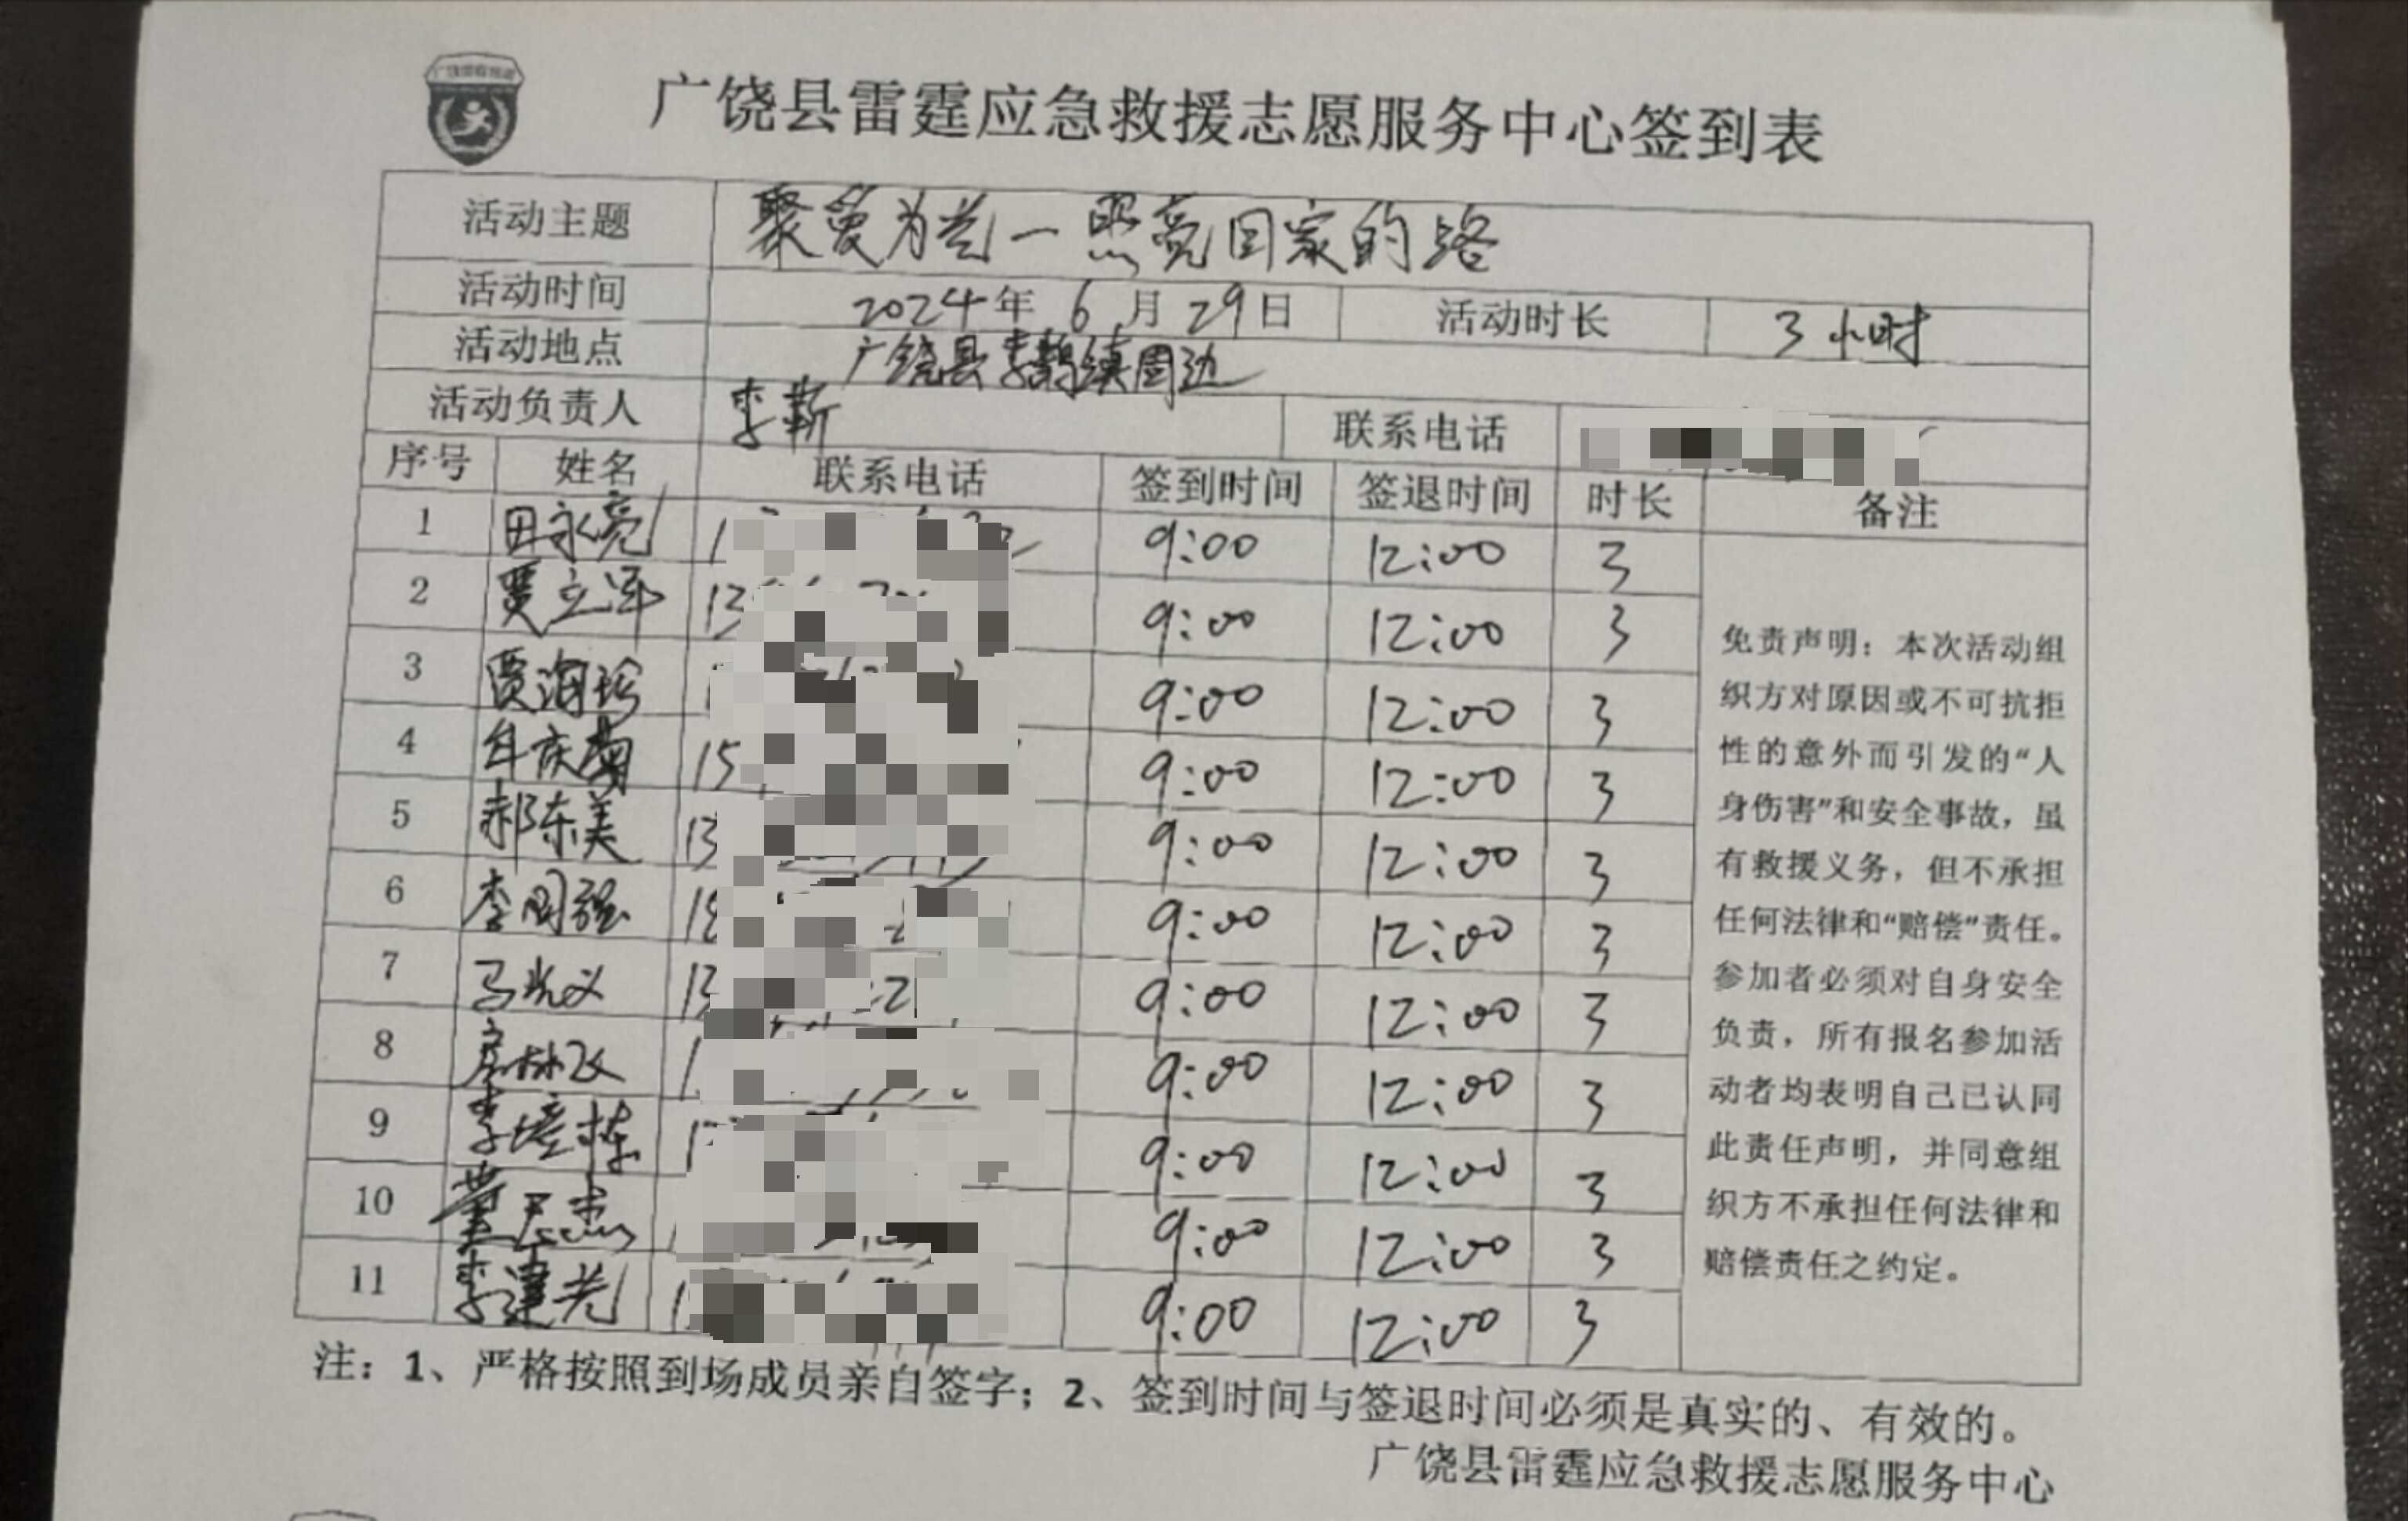 广饶县雷霆应急救援志愿服务中心签到表
活动主题 聚爱为光一照亮回家的路
活动时间 2024年 6月 29日 活动时长 3小时
活动地点 广饶县李鹊镇周边
活动负责人 李新 联系电话
序号 姓名 联系电话 签到时间 签退时间 时长 备注
1 田永亮 9:00 12:00 3
2 贾立军 13 9:00 12:00 3
3 贾海珍 9:00 12:00 3
4 牟庆菊 15 9:00 12:00 3
5 郝东美 13 9:00 12:00 3
6 李同强 9:00 12:00 3
7 马光义 13 9:00 12:00 3
8 9:00 12:00 3
9 李培栋 9:00 12:00 3
10 9:00 12:00 3
11 李建光 9:00 12:00 3
免责声明：本次活动组
织方对原因或不可抗拒
性的意外而引发的“人
身伤害”和安全事故，虽
有救援义务，但不承担
任何法律和“赔偿”责任。
参加者必须对自身安全
负责，所有报名参加活
动者均表明自己已认同
此责任声明，并同意组
织方不承担任何法律和
赔偿责任之约定。
注：1、严格按照到场成员亲自签字；2、签到时间与签退时间必须是真实的、有效的。
广饶县雷霆应急救援志愿服务中心